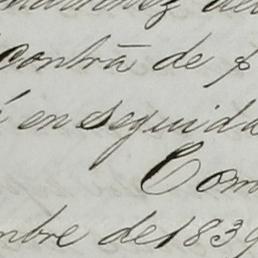 contra de p
en seguida
Com
mbre de 1839